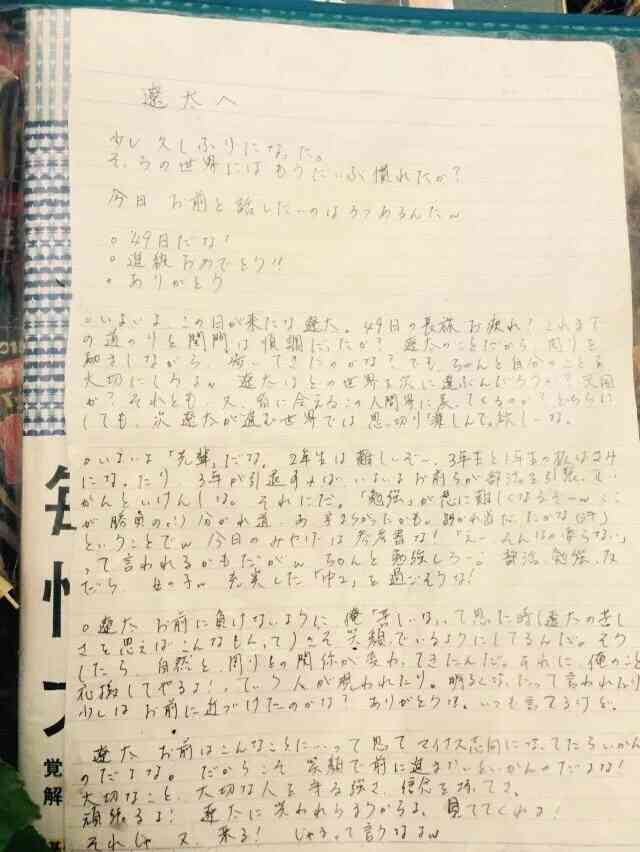 遼太へ
少し久しぶりになった。
そっちの世界にはもうだいぶ慣れたか?
今日 お前と話したいのは3つあるんだw
○49日だな!
○進級おめでとう!!
○ありがとう
○いよいよ、この日が来たな遼太。49日の長旅お疲れ!これまで
の道のりと関門は順調だったか? 遼太のことだから 周りを
励ましながら、 歩いてきたのかな?でも、ちゃんと自分のことも
大切にしろよw 遼太はどの世界を次に選ぶんだろうか?天国
か? それとも、又 俺に会えるこの人間界に戻ってくるのか?どちらに
しても、次 遼太が進む世界では思いっきり楽しんで欲しーな。
○いよいよ「先輩」だな。 2年生は難しいぞー、3年生と1年生の板ばさみ
になったり 3年が引退すれば いよいよお前らが部活を引っ張って
かんといけんしな。 それにだ。「勉強」が急に難しくなるぞーw ここ
が 勝負の 分かれ道
ということでw 今日のみやげは参考書な!「えー そんなの要らない」
って言われるかもだがw ちゃんと勉強しろー。 部活、勉強、友
だち 女の子w 充実した「中2」を過ごそうな!
○遼太 お前に負けないように 俺「苦しいな」って思った時(遼太の苦し
さを思えばこんなもんって)こそ笑顔でいるようにしてるんだ。そう
したら、自然と、周りとの関係が変わってきたんだ。それに、俺のこと
応援してやるよ!っていう人が現われたり。明るくなったって言われたり
少しは お前に近づけたのかな? ありがとうな。いつも言ってるけど。
遼太 お前はこんなことに…って思って マイナス志向になってたらいかん
のだよな。 だからこそ 笑顔で前に進まないといかんのだよな!
大切なこと、大切な人を守る強さ、信念を持ってさ。
頑張るよ! 遼太に笑われちまうからよ、見ててくれよ!
それじゃ 又 来る! じゃあって言うなよw
覚
解